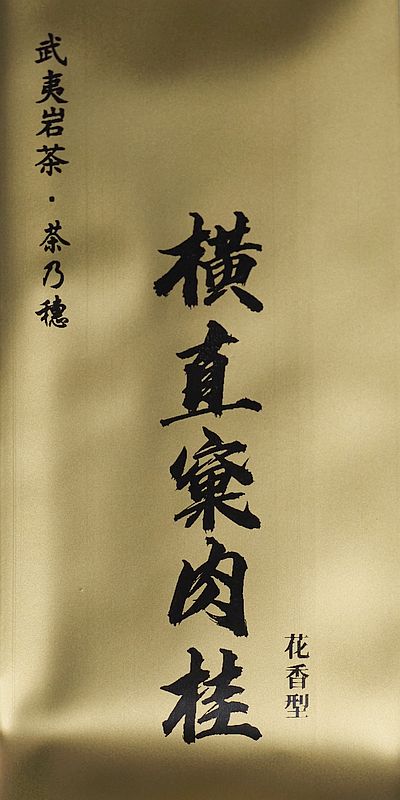 武夷岩茶·茶乃穗
橫直窠肉桂
花香型